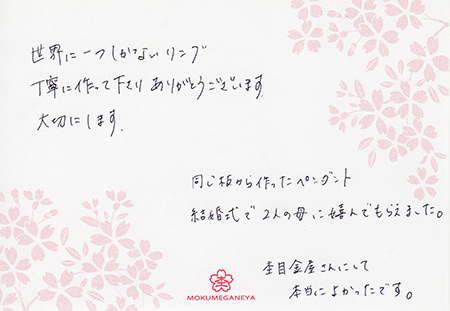 世界に一つしかないリング
丁寧に作って下さりありがとうございます.
大切にします.
同じ板から作ったペンダント
結婚式で2人の母に喜んでもらえました。
杢目金屋さんにして
本当によかったです。
MOKUMEGANEYA